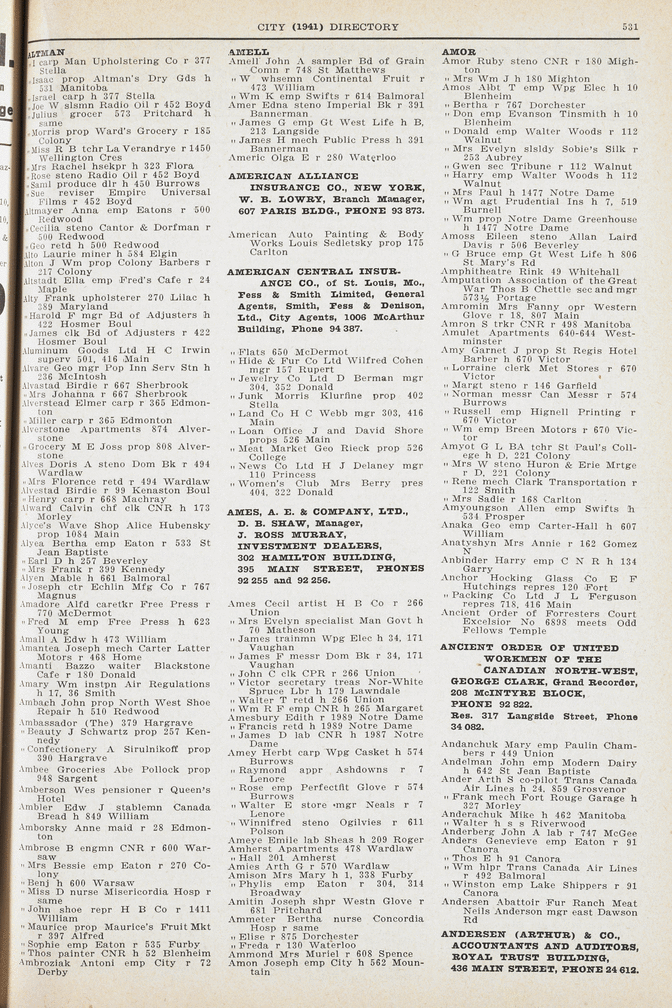 CITY (1941) DIRECTORY 531
ALTMAN
"I carp Man Upholstering Co r 377
Stella
"Isaac prop Altman's Dry Gds h
531 Manitoba
"Israel carp h 377 Stella
"Joe W slsmn Radio Oil r 452 Boyd
"Julius grocer 573 Pritchard h
same
"Morris prop Ward's Grocery r 185
Colony
"Miss R B tchr La Verandrye r 1450
Wellington Cres
"Mrs Rachel hsekpr h 323 Flora
"Rose steno Radio Oil r 452 Boyd
"Saml produce dlr h 450 Burrows
"Sue reviser Empire Universal
Films r 452 Boyd
Altmayer Anna emp Eatons r 500
Redwood
"Cecilia steno Cantor & Dorfman r
500 Redwood
"Geo retd h 500 Redwood
Alto Laurie miner h 584 Elgin
Alton J Wm prop Colony Barbers r
217 Colony
Altstadt Ella emp Fred's Cafe r 24
Maple
Alty Frank upholsterer 270 Lilac h
389 Maryland
"Harold F mgr Bd of Adjusters h
422 Hosmer Boul
"James clk Bd of Adjusters r 422
Hosmer Boul
Aluminum Goods Ltd H C Irwin
superv 501, 416 Main
Alvare Geo mgr Pop Inn Serv Stn h
236 McIntosh
Alvastad Birdie r 667 Sherbrook
"Mrs Johanna r 667 Sherbrook
Alverstead Elmer carp r 365 Edmon-
ton
"Miller carp r 365 Edmonton
Alverstone Apartments 874 Alver-
stone
"Grocery M E Joss prop 808 Alver-
stone
Alves Doris A steno Dom Bk r 494
Wardlaw
"Mrs Florence retd r 494 Wardlaw
Alvestad Birdie r 99 Kenaston Boul
"Henry carp r 668 Machray
Alward Calvin chf clk CNR h 173
Morley
Alyce's Wave Shop Alice Hubensky
prop 1084 Main
Alyea Bertha emp Eaton r 533 St
Jean Baptiste
"Earl D h 257 Beverley
"Mrs Frank r 399 Kennedy
Alyen Mable h 661 Balmoral
"Joseph ctr Echlin Mfg Co r 767
Magnus
Amadore Alfd caretkr Free Press r
770 McDermot
"Fred M emp Free Press h 623
Young
Amall A Edw h 473 William
Amantea Joseph mech Carter Latter
Motors r 468 Home
Amanti Bazzo waiter Blackstone
Cafe r 180 Donald
Amary Wm instpn Air Regulations
h 17, 36 Smith
Ambach John prop North West Shoe
Repair h 510 Redwood
Ambassador (The) 379 Hargrave
"Beauty J Schwartz prop 257 Ken-
nedy
"Confectionery A Sirulnikoff prop
390 Hargrave
Ambee Groceries Abe Pollock prop
948 Sargent
Amberson Wes pensioner r Queen's
Hotel
Ambler Edw J stablemn Canada
Bread h 849 William
Amborsky Anne maid r 28 Edmon-
ton
Ambrose B engmn CNR r 600 War-
saw
"Mrs Bessie emp Eaton r 270 Co-
lony
"Benj h 600 Warsaw
"Miss D nurse Misericordia Hosp r
same
"John shoe repr H B Co r 1411
William
"Maurice prop Maurice's Fruit Mkt
r 397 Alfred
"Sophie emp Eaton r 535 Furby
"Thos painter CNR h 52 Blenheim
Ambroziak Antoni emp City r 72
Derby
AMELL
Amell John A sampler Bd of Grain
Comn r 748 St Matthews
"W whsemn Continental Fruit r
473 William
"Wm K emp Swifts r 614 Balmoral
Amer Edna steno Imperial Bk r 391
Bannerman
"James G emp Gt West Life h B,
213 Langside
"James H mech Public Press h 391
Bannerman
Americ Olga E r 280 Waterloo
AMERICAN ALLIANCE
INSURANCE CO., NEW YORK,
W. B. LOWRY, Branch Manager,
607 PARIS BLDG., PHONE 93 873.
American Auto Painting & Body
Works Louis Sedletsky prop 175
Carlton
AMERICAN CENTRAL INSUR-
ANCE CO., of St. Louis, Mo.,
Fess & Smith Limited, General
Agents, Smith, Fess & Denison,
Ltd., City Agents, 1006 McArthur
Building, Phone 94 387.
"Flats 650 McDermot
"Hide & Fur Co Ltd Wilfred Cohen
mgr 157 Rupert
"Jewelry Co Ltd D Berman mgr
304, 352 Donald
"Junk Morris Klurfine prop 402
Stella
"Land Co H C Webb mgr 303, 416
Main
"Loan Office J and David Shore
props 526 Main
"Meat Market Geo Rieck prop 526
College
"News Co Ltd H J Delaney mgr
110 Princess
"Women's Club Mrs Berry pres
404, 322 Donald
AMES, A. E. & COMPANY, LTD.,
D. B. SHAW, Manager,
J. ROSS MURRAY,
INVESTMENT DEALERS,
302 HAMILTON BUILDING,
395 MAIN STREET, PHONES
92 255 and 92 256.
Ames Cecil artist H B Co r 266
Union
"Mrs Evelyn specialist Man Govt h
70 Matheson
"James trainmn Wpg Elec h 34, 171
Vaughan
"James F messr Dom Bk r 34, 171
Vaughan
"John C clk CPR r 266 Union
"Victor secretary treas Nor-White
Spruce Lbr h 179 Lawndale
"Walter T retd h 266 Union
"Wm R F emp CNR h 265 Margaret
Amesbury Edith r 1989 Notre Dame
"Francis retd h 1989 Notre Dame
"James D lab CNR h 1987 Notre
Dame
Amey Herbt carp Wpg Casket h 574
Burrows
"Raymond appr Ashdowns r 7
Lenore
"Rose emp Perfectfit Glove r 574
Burrows
"Walter E store mgr Neals r 7
Lenore
"Winnifred steno Ogilvies r 611
Polson
Ameye Emile lab Sheas h 209 Roger
Amherst Apartments 478 Wardlaw
"Hall 201 Amherst
Amies Arth G r 570 Wardlaw
Amison Mrs Mary h 1, 338 Furby
"Phylis emp Eaton r 304, 314
Broadway
Amitin Joseph shpr Westn Glove r
681 Pritchard
Ammeter Bertha nurse Concordia
Hosp r same
"Elise r 875 Dorchester
"Freda r 130 Waterloo
Ammond Mrs Muriel r 608 Spence
Amon Joseph emp City h 562 Moun-
tain
AMOR
Amor Ruby steno CNR r 180 Migh-
ton
"Mrs Wm J h 180 Mighton
Amos Albt T emp Wpg Elec h 10
Blenheim
"Bertha r 767 Dorchester
"Don emp Evanson Tinsmith h 10
Blenheim
"Donald emp Walter Woods r 112
Walnut
"Mrs Evelyn slsldy Sobie's Silk r
253 Aubrey
"Gwen sec Tribune r 112 Walnut
"Harry emp Walter Woods h 112
Walnut
"Mrs Paul h 1477 Notre Dame
"Wm agt Prudential Ins h 7, 519
Burnell
"Wm prop Notre Dame Greenhouse
h 1477 Notre Dame
Amoss Eileen steno Allan Laird
Davis r 506 Beverley
"G Bruce emp Gt West Life h 806
St Mary's Rd
Amphitheatre Rink 49 Whitehall
Amputation Association of the Great
War Thos B Chettle sec and mgr
573½ Portage
Amromin Mrs Fanny opr Western
Glove r 18, 807 Main
Amron S trkr CNR r 498 Manitoba
Amulet Apartments 640-644 West-
minster
Amy Garnet J prop St Regis Hotel
Barber h 670 Victor
"Lorraine clerk Met Stores r 670
Victor
"Margt steno r 146 Garfield
"Norman messr Can Messr r 574
Burrows
"Russell emp Hignell Printing r
670 Victor
"Wm emp Breen Motors r 670 Vic-
tor
Amyot G L BA tchr St Paul's Coll-
ege h D, 221 Colony
"Mrs W steno Huron & Erie Mrtge
r D, 221 Colony
"Rene mech Clark Transportation r
122 Smith
"Mrs Sadie r 168 Carlton
Amyoungson Allen emp Swifts h
534 Prosper
Anaka Geo emp Carter-Hall h 607
William
Anatyshyn Mrs Annie r 162 Gomez
N
Anbinder Harry emp C N R h 134
Garry
Anchor Hocking Glass Co E F
Hutchings repres 120 Fort
"Packing Co Ltd J L Ferguson
repres 718, 416 Main
Ancient Order of Forresters Court
Excelsior No 6898 meets Odd
Fellows Temple
ANCIENT ORDER OF UNITED
WORKMEN OF THE
CANADIAN NORTH-WEST,
GEORGE CLARK, Grand Recorder,
208 McINTYRE BLOCK,
PHONE 92 822.
Res. 317 Langside Street, Phone
34 082.
Andanchuk Mary emp Paulin Cham-
bers r 449 Union
Andelman John emp Modern Dairy
h 642 St Jean Baptiste
Ander Arth S co-pilot Trans Canada
Air Lines h 24, 859 Grosvenor
"Frank mech Fort Rouge Garage h
327 Morley
Anderachuk Mike h 462 Manitoba
"Walter h s s Riverwood
Anderberg John A lab r 747 McGee
Anders Genevieve emp Eaton r 91
Canora
"Thos E h 91 Canora
"Wm hlpr Trans Canada Air Lines
r 492 Balmoral
"Winston emp Lake Shippers r 91
Canora
Andersen Abattoir Fur Ranch Meat
Neils Anderson mgr east Dawson
Rd
ANDERSEN (ARTHUR) & CO.,
ACCOUNTANTS AND AUDITORS,
ROYAL TRUST BUILDING,
436 MAIN STREET, PHONE 24 612.